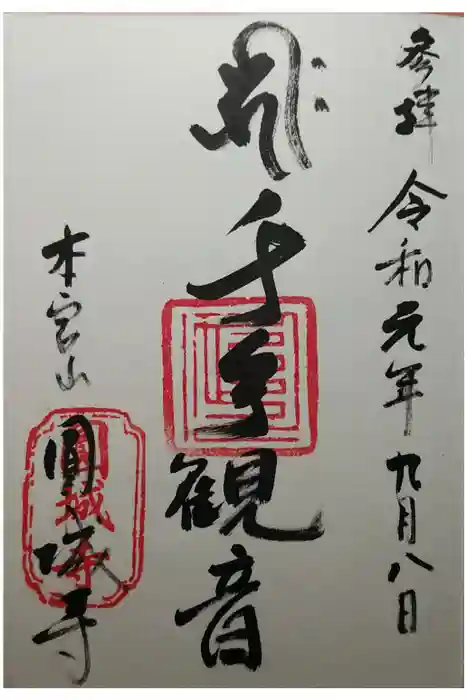 参拝
令和元年九月八日
千手観音
本宮山
圓城寺